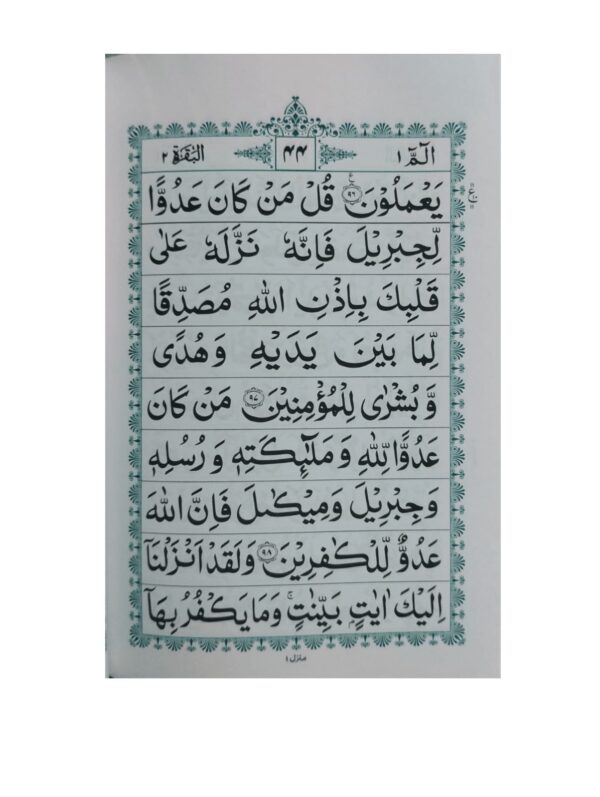 الٓمّٓ ١ ۴۴ البقرة ٢
يَعْمَلُوْنَ ﴿۹۶﴾ قُلْ مَنْ كَانَ عَدُوًّا
لِّجِبْرِيْلَ فَاِنَّهٗ نَزَّلَهٗ عَلٰى
قَلْبِكَ بِاِذْنِ اللّٰهِ مُصَدِّقًا
لِّمَا بَيْنَ يَدَيْهِ وَهُدًى
وَّ بُشْرٰى لِلْمُؤْمِنِيْنَ ﴿۹۷﴾ مَنْ كَانَ
عَدُوًّا لِّلّٰهِ وَ مَلٰٓئِكَتِهٖ وَ رُسُلِهٖ
وَ جِبْرِيْلَ وَ مِيْكٰىلَ فَاِنَّ اللّٰهَ
عَدُوٌّ لِّلْكٰفِرِيْنَ ﴿۹۸﴾ وَ لَقَدْ اَنْزَلْنَاۤ
اِلَيْكَ اٰيٰتٍۭ بَيِّنٰتٍ ۚ وَ مَا يَكْفُرُ بِهَاۤ
منزل ١